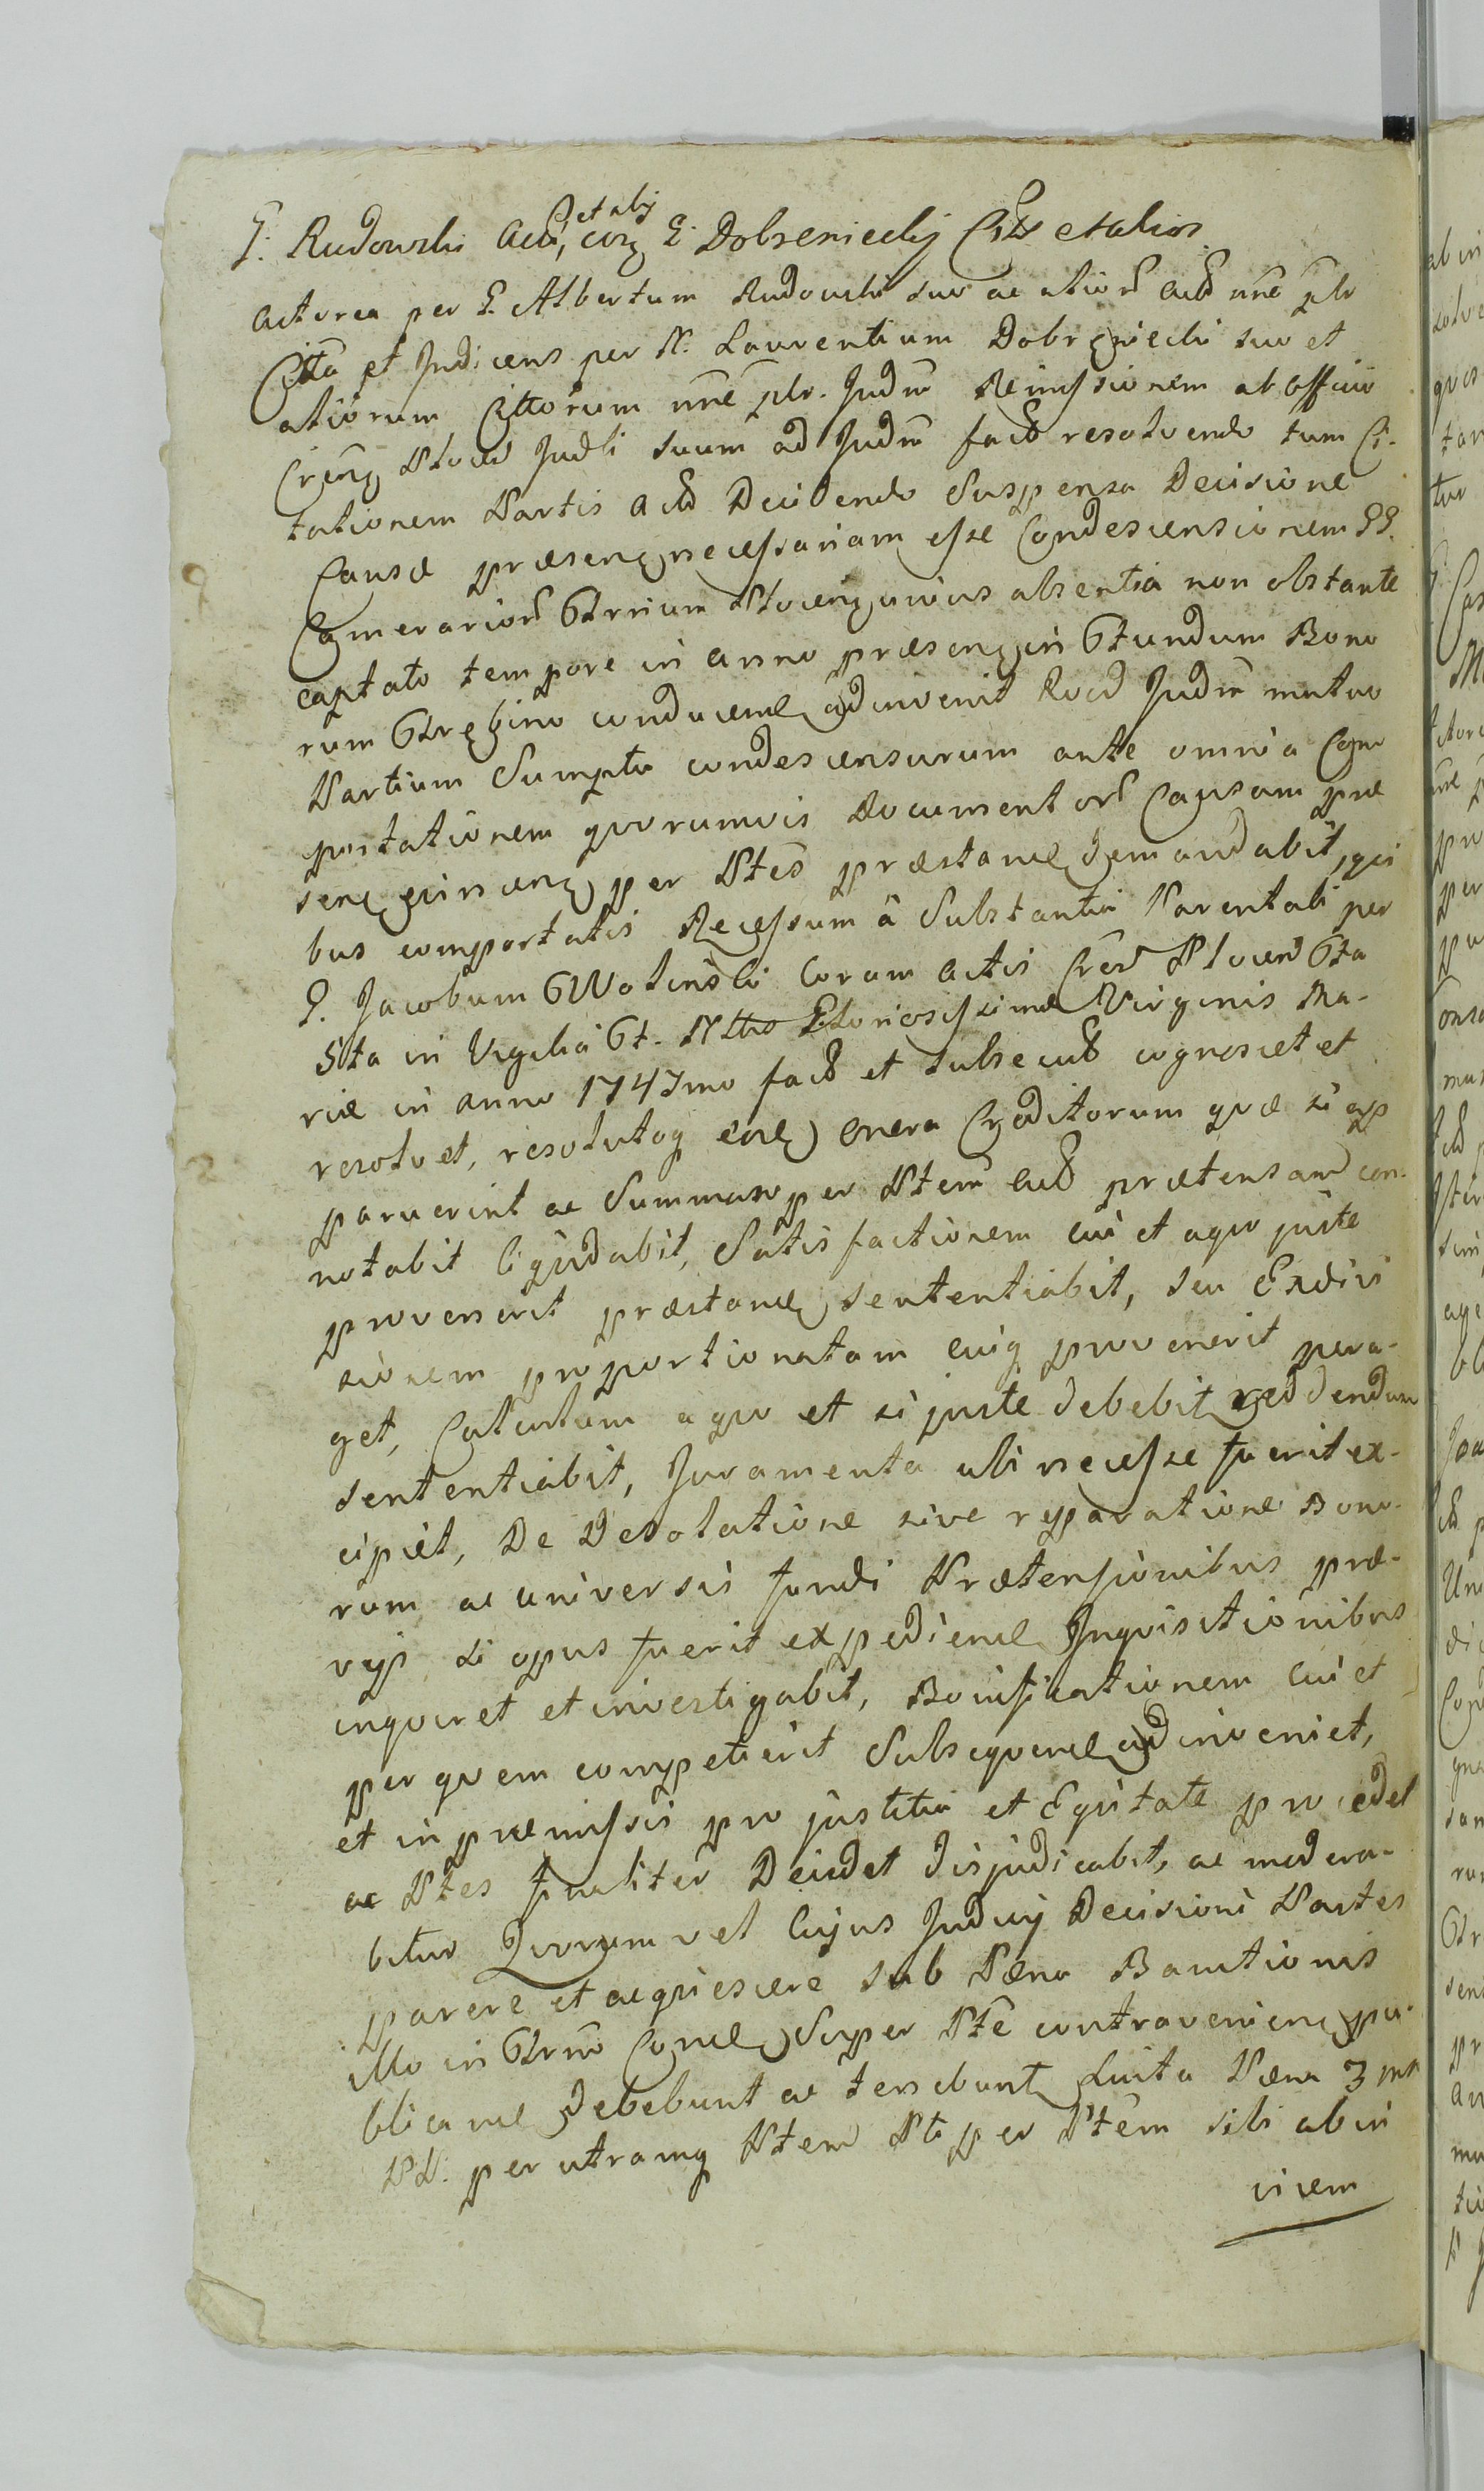 G. Rudowski Act, et alij cõrą G. Dobrzeniecky Citt et alios
Actorea per G. Albertum Rudowski suo ac alior Act nñe plr
Citta et Judicens per N. Laurentium Dobrzeniecki suo et
aliorum Cittorum nñe plr. Judm Remissionem ab officio
Crenz Plocen Judli suum ad Judm fact resolvendo tum Ci-
tationem Partis Act Decidendo Suspensa Decisione
Causæ præsenz necessariam esse Condescensionem GG.
Camerarior Gtrnium Plocenz unius absentia non obstante
captato tempore in Anno præsenz in Gtundum Bono
rum Gtrzębino conducene adinvenit Quod Judm mutuo
Partium Sumptu condescensurum ante omnia Com
portationem quorumvis Documentor Causam præ
senz concernz per Ptes præstance demandabit, qui
bus comportatis Recessum à Substantia Parentali per
G. Jacobum GWolinski Coram Actis Cren Plocen Gta
Sita in Vigilia Gt. Gloriosissimæ Virginis Ma-
riæ in Anno 1747mo fact et subsecut cognoscet et
resolvet, resolutoq eoe) onera Creditorum quæ si ap
paruerint ac Summam per Ptem Act prætensam con-
notabit liquidabit, Satisfactionem cui et a quo juste
provenerit præstance sententiabit, seu Exdivi
sionem proportionatam cuiq provenerit pera-
get, Calculum a quo et si juste debebit reddendum
sententiabit, Juramenta ubi necesse fuerit ex-
cipiet, De Desolatione sive reparatione Bono-
rum ac universis fundi Prætensionibus præ-
vijs si opus fuerit expedience Inquisitionibus
inquiret et investigabit, Bonificationem cui et
per quem competierit Subsequence adinveniet,
et in præmissis pro justitia et Equitate procedet
ac Ptes finaliter Decidet disjudicabit, ac modera-
bitur Quorum vel Cujus Judicij Decisioni Partes
parere et acquiescere sub Pæna Banitionis
illo in Gtrno Conce) Super Pte contravenienz pu-
blicance Debebunt ac tenebunt Luita Pæna 3 mr
PP. per utramq Ptem Pti per Ptem sibi ab in
vicem